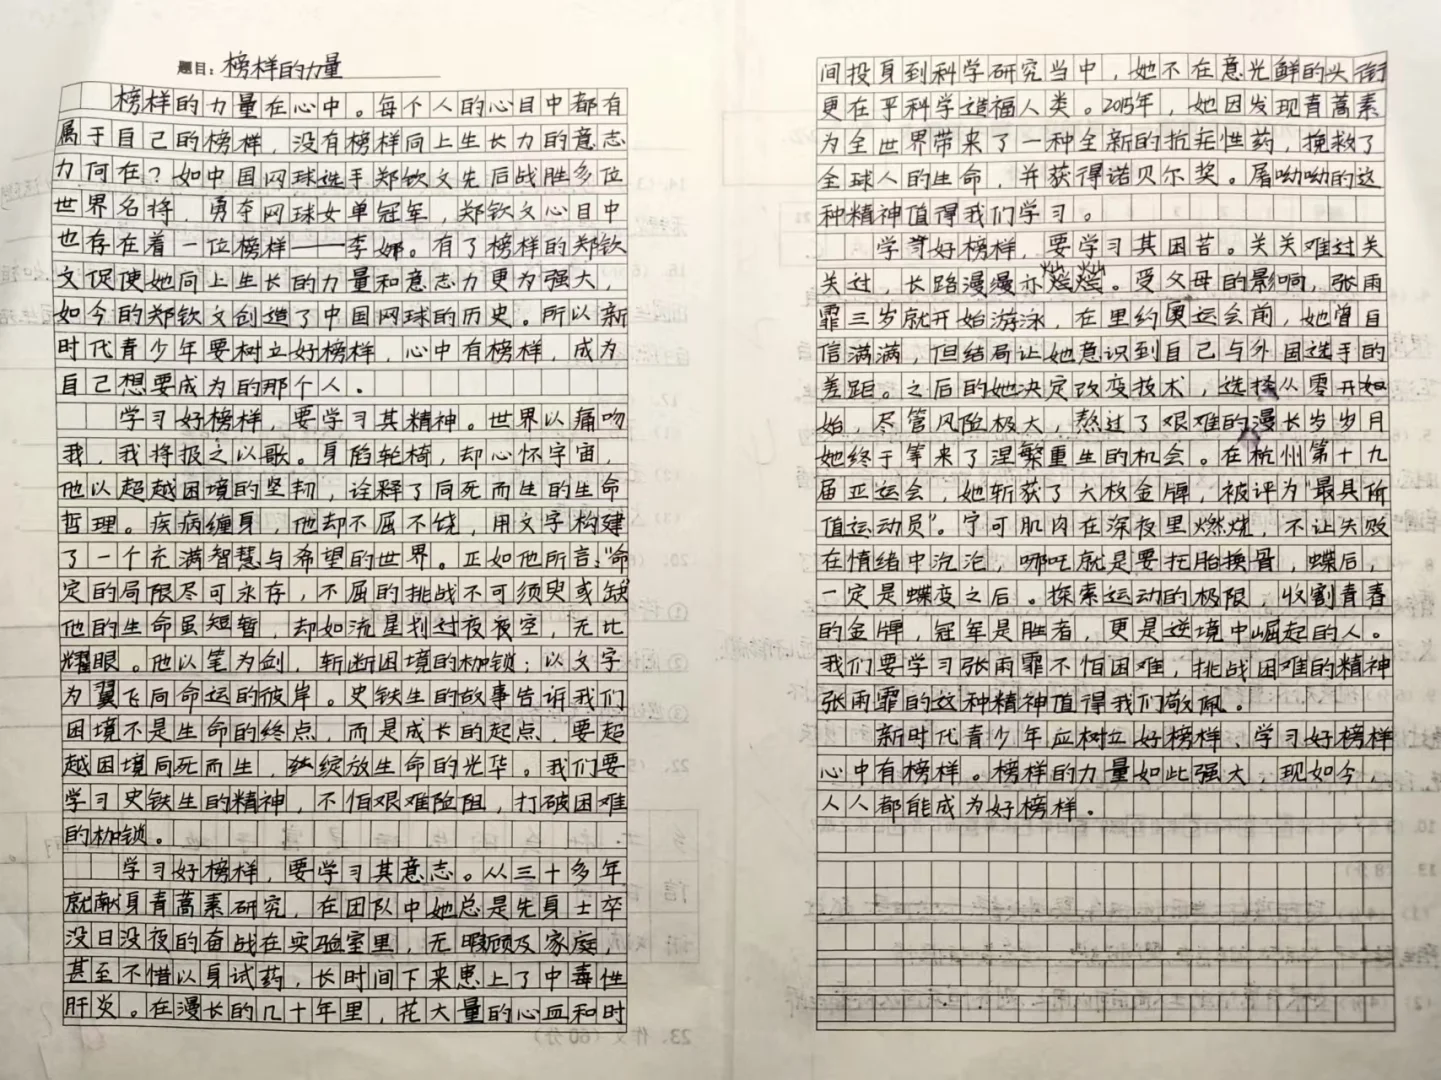 题目：榜样的力量
榜样的力量在心中。每个人的心目中都有
属于自己的榜样，没有榜样向上生长力的意志
力何在？如中国网球选手郑钦文先后战胜多位
世界名将，勇夺网球女单冠军，郑钦文心目中
也存在着一位榜样——李娜。有了榜样的郑钦
文促使她向上生长的力量和意志力更为强大，
如今的郑钦文创造了中国网球的历史。所以新
时代青少年要树立好榜样，心中有榜样，成为
自己想要成为的那个人。
学习好榜样，要学习其精神。世界以痛吻
我，我将报之以歌。身陷轮椅，却心怀宇宙，
他以超越困境的坚韧，诠释了向死而生的生命
哲理。疾病缠身，他却不屈不饶，用文字构建
了一个充满智慧与希望的世界。正如他所言：“命
定的局限尽可永存，不屈的挑战不可须臾或缺
他的生命虽短暂，却如流星划过夜夜空，无比
耀眼。他以笔为剑，斩断困境的枷锁；以文字
为翼飞向命运的彼岸。史铁生的故事告诉我们
困境不是生命的终点，而是成长的起点，要超
越困境向死而生，绽放生命的光华。我们要
学习史铁生的精神，不怕艰难险阻，打破困难
的枷锁。
学习好榜样，要学习其意志。从三十多年
就献身青蒿素研究，在团队中她总是先身士卒
没日没夜的奋战在实验室里，无暇顾及家庭，
甚至不惜以身试药，长时间下来患上了中毒性
肝炎。在漫长的几十年里，花大量的心血和时
间投身到科学研究当中，她不在意光鲜的头衔
更在乎科学造福人类。2015年，她因发现青蒿素
为全世界带来了一种全新的抗疟性药，挽救了
全球人的生命，并获得诺贝尔奖。屠呦呦的这
种精神值得我们学习。
学习好榜样，要学习其困苦。关关难过关
关过，长路漫漫亦灿灿。受父母的影响，张雨
霏三岁就开始游泳，在里约奥运会前，她曾自
信满满，但结局让她意识到自己与外国选手的
差距。之后的她决定改变技术，选择从零开如
始，尽管风险极大，熬过了艰难的漫长岁岁月
她终于等来了涅槃重生的机会。在杭州第十九
届亚运会，她斩获了六枚金牌，被评为“最具价
值运动员”。宁可肌肉在深夜里燃烧，不让失败
在情绪中沉沦，哪吒就是要托胎换骨，蝶后
一定是蝶变之后。探索运动的极限，收割青春
的金牌，冠军是胜者，更是逆境中崛起的人。
我们要学习张雨霏不怕困难，挑战困难的精神
张雨霏的这种精神值得我们敬佩。
新时代青少年应树立好榜样、学习好榜样
心中有榜样。榜样的力量如此强大，现如今，
人人都能成为好榜样。
23. 作文（60分）